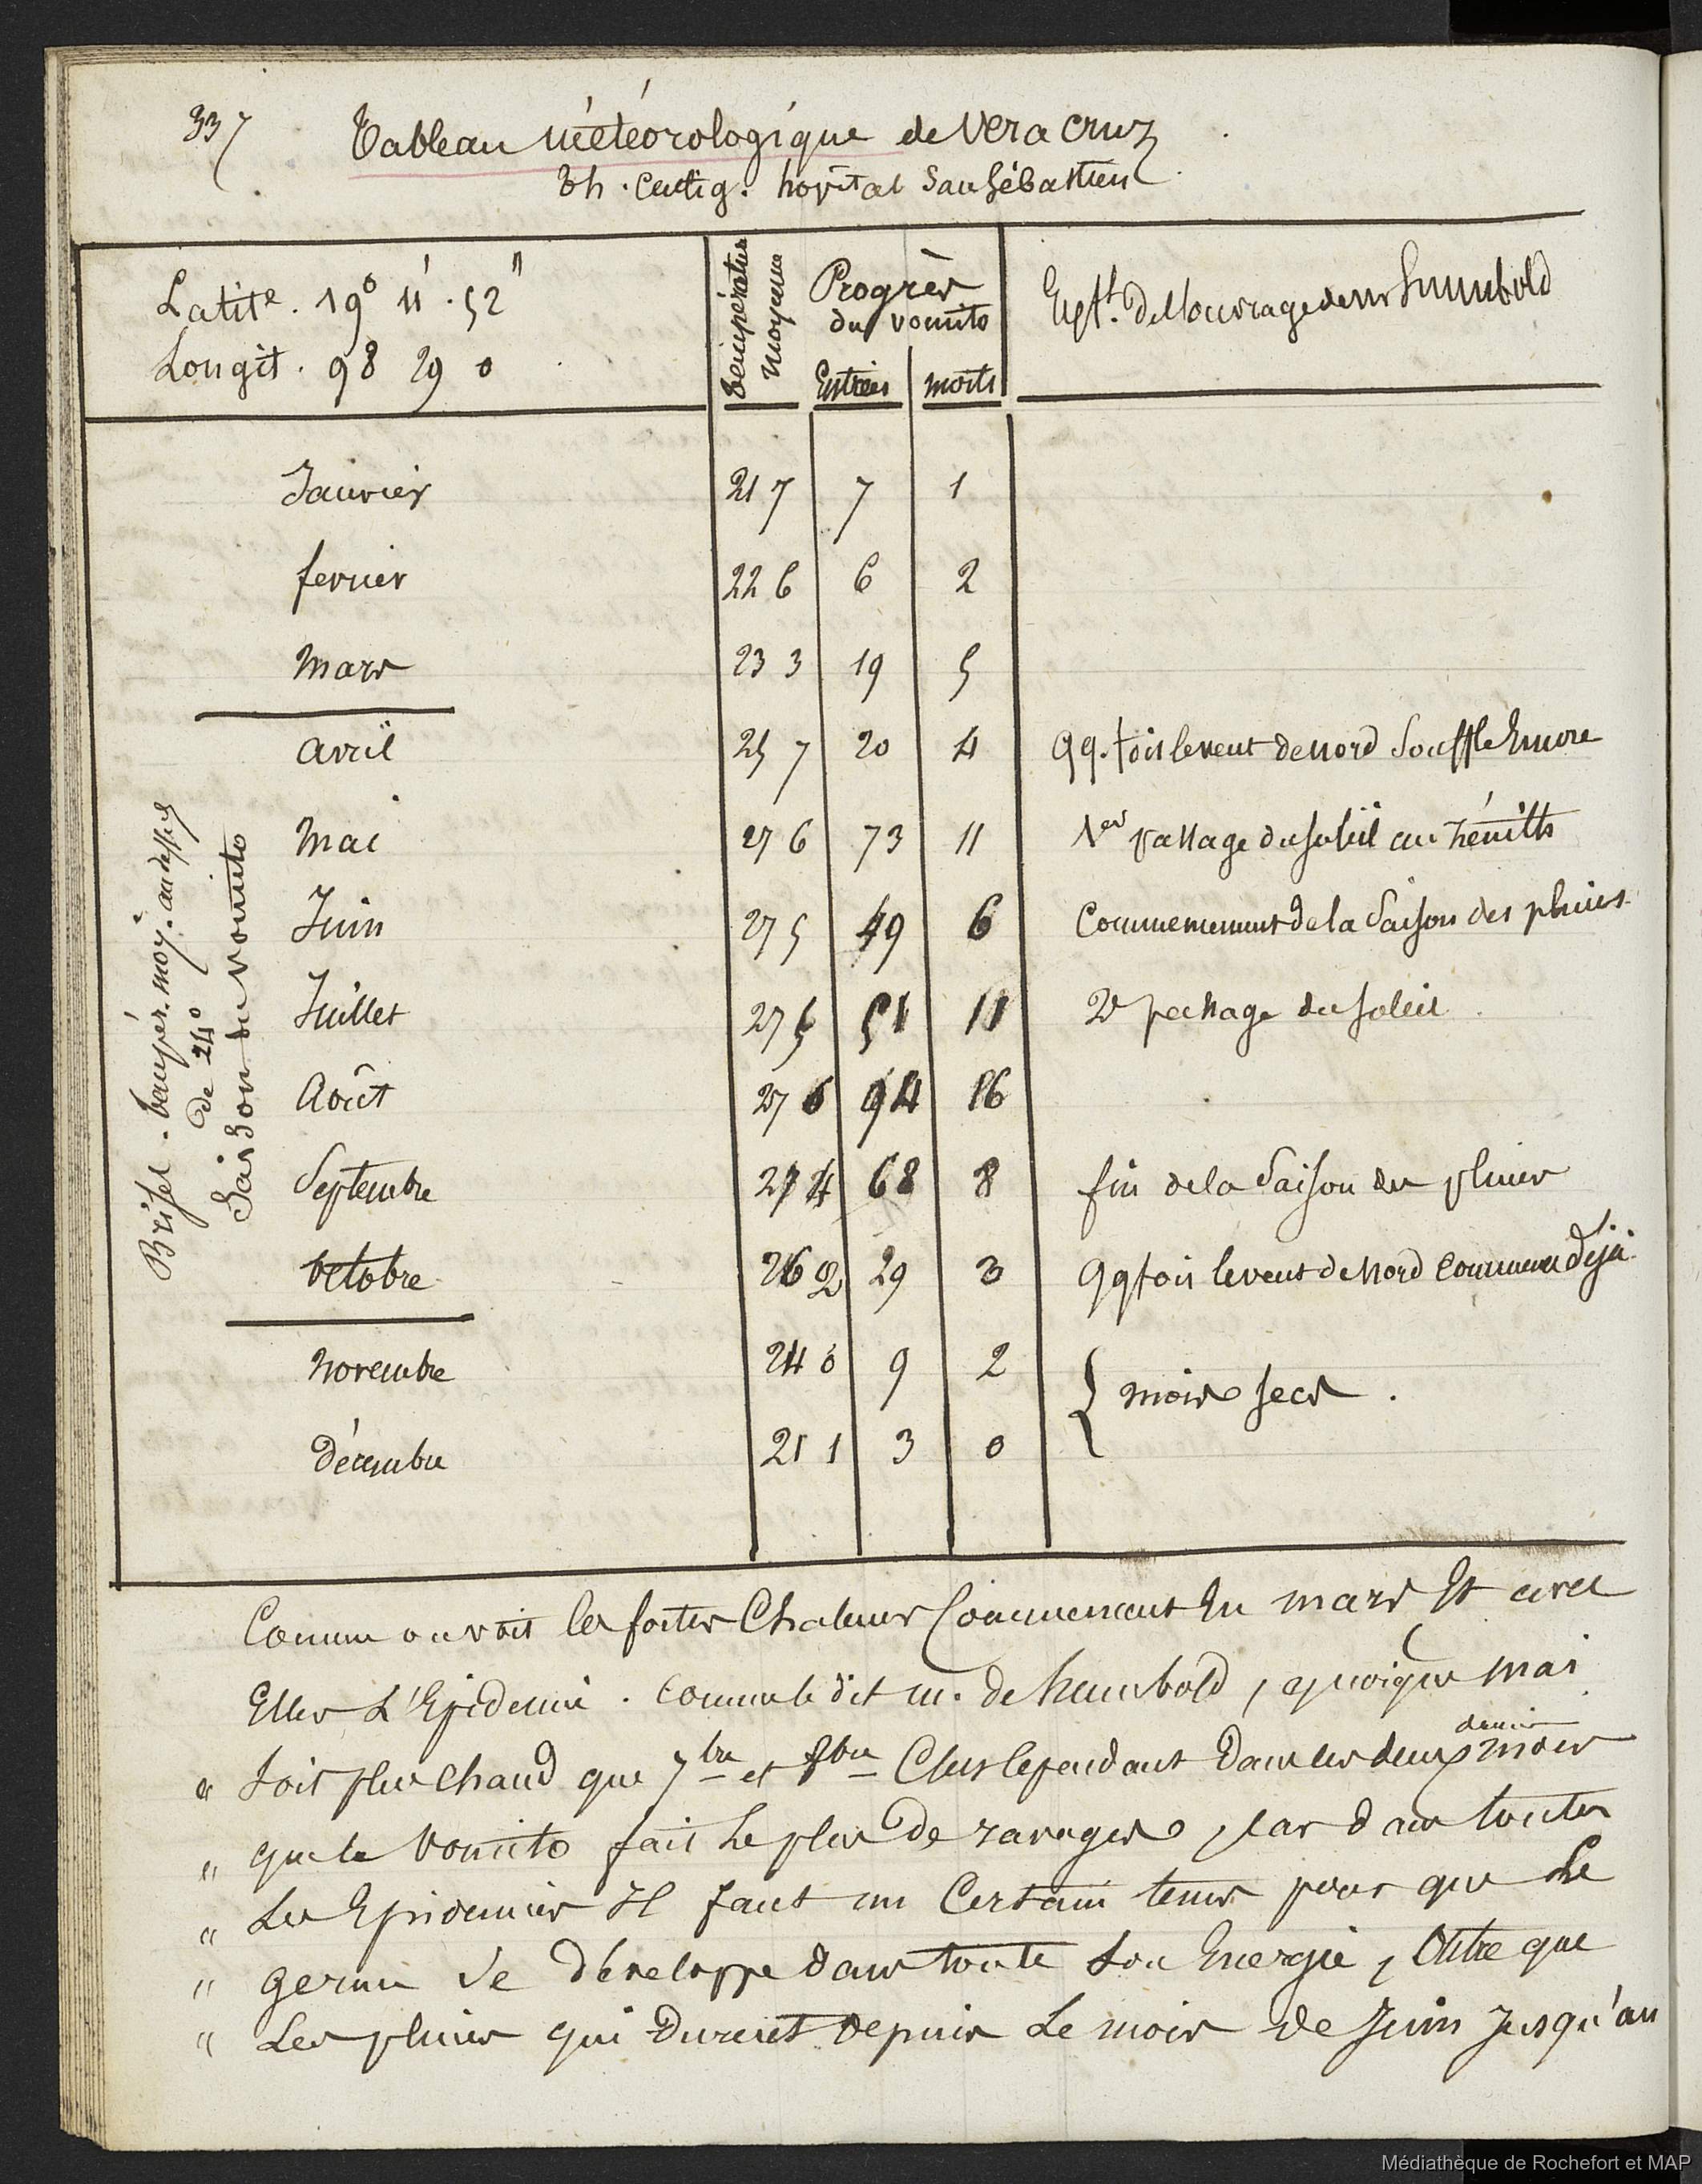 337
Tableau météorologique de Vera Cruz
Th. Centig. hopital San Sébastien
Latite. 19° 11' . 52"
Longit. 98 29 0
température moyenne
Progrès du vomito
Entrées
morts
Ext. De l'ouvrage de mr humbold
Janvier 21 7 7 1
fevrier 22 6 6 2
Mars 23 3 19 5
Avril 25 7 20 4 qq. fois le vent de nord souffle Encore
Mai 27 6 73 11 1er passage du soleil au Zénith
Juin 27 5 49 6 Commencement de la Saison des pluies
Juillet 27 5 51 11 2e passage du soleil
Août 27 6 94 16
Septembre 27 4 68 8 fin de la Saison des pluies
Octobre 26 2 29 3 qqfois le vent de Nord commence déjà
Novembre 24 0 9 2
Décembre 21 1 3 0
mois secs .
Brises . tempér. moy. au dessus
de 24°
Saison du vomito
Comme on voit les fortes Chaleurs Commencent En mars Et avec
Elles L'Epidemie . comme le dit m. de humbold , quoique mai
" soit plus chaud que 7bre et 8bre C'est Cependant Dans les deux derniers mois
" que le Vomito fait Le plus De ravages , Car dans toutes
" Les Epidemies Il faut un Certain tems pour que Le
" germe se développe dans toute son Energie , Outre que
" Les pluies qui Durent Depuis Le mois de Juin Jusqu'au
Médiathèque de Rochefort et MAP